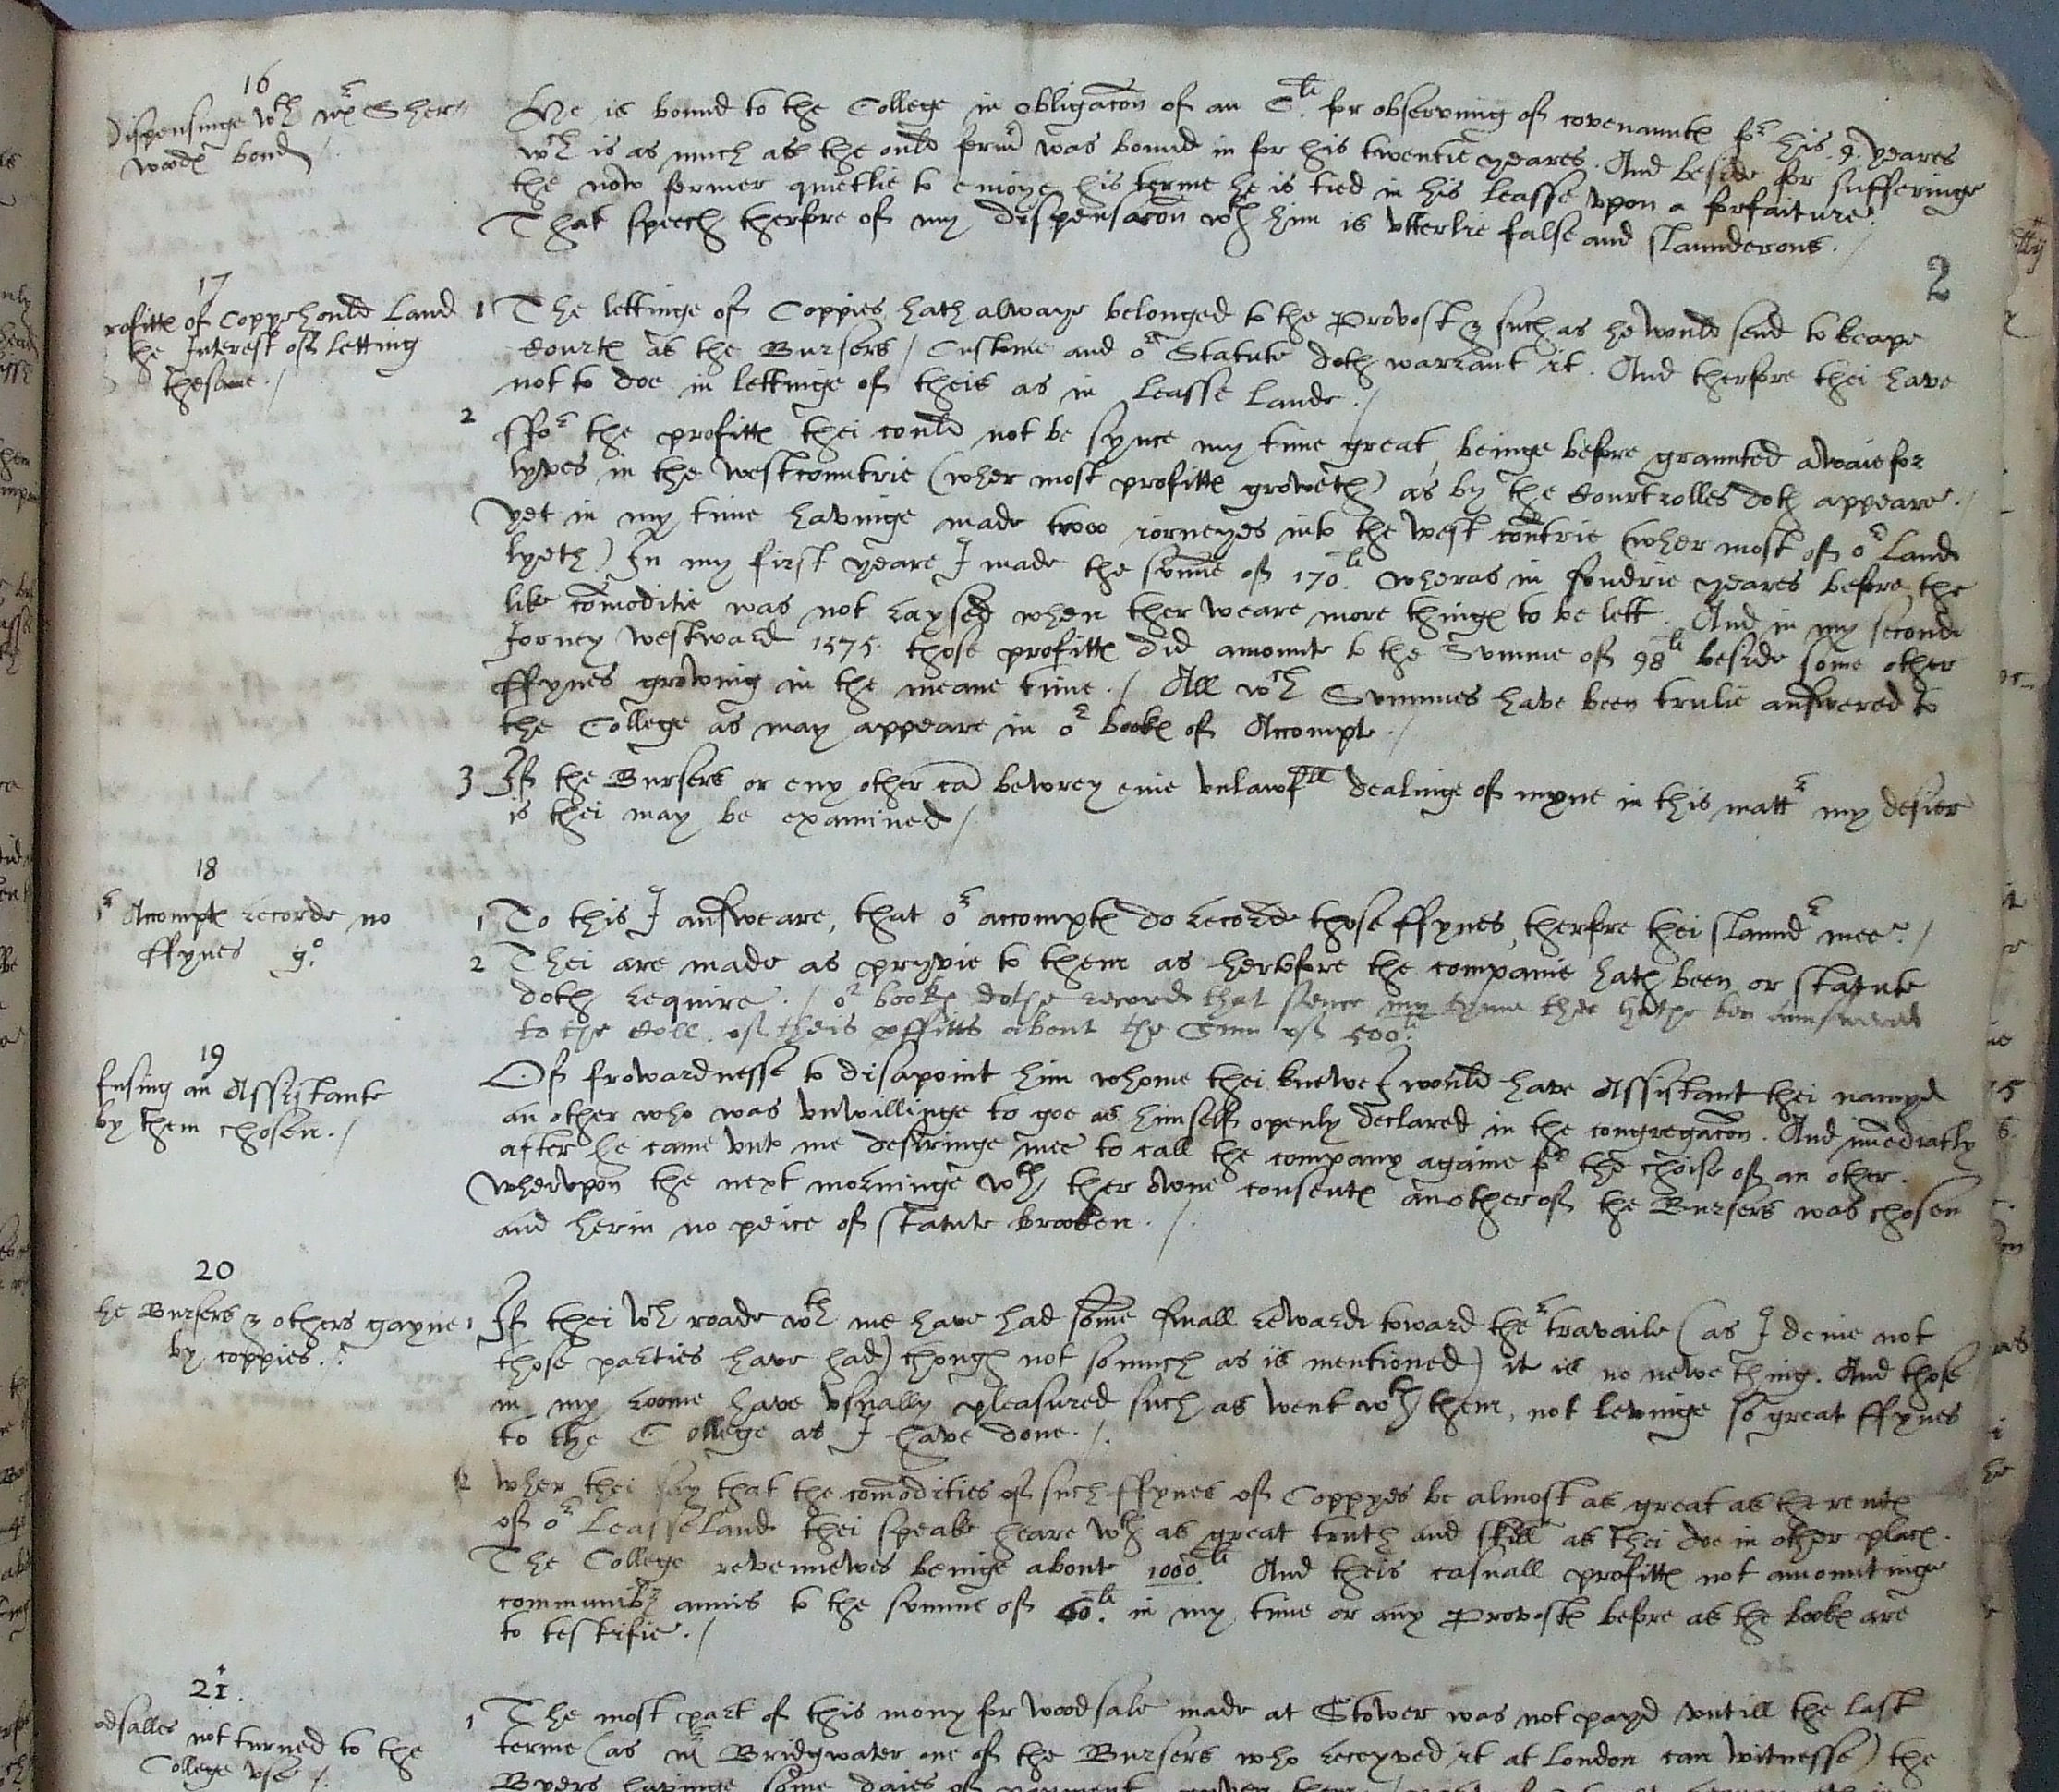 16
Dispensinge wth mr Sher
woods bond /
He is bound to the College in obligacon of an C li for observing of covenauntes for his 9. yeares
wch is as much as the ould fermr was bound in for his twentie yeares. And beside for sufferinge
the now fermer quietlie to enioye his terme he is tied in his leasse vpon a forfaiture.
That speech therfore of my dispensacon wth him is vtterlie false and slaunderous. /
2
17
rofittes of Coppehould Land
he Interest of letting
thesame. /
1 The lettinge of Coppies hath alwaye belonged to the Provost & such as he would send to keape
Courtes as the Bursers / Custome and or Statute doth warrant it. And therfore thei have
not to doe in lettinge of theis as in leasse lande. /
2 ffor the profittes thei could not be synce my time great, beinge before graunted awaie for
lyves in the westcountrie (wher most profittes groweth) as by the Court rolles doth appeare. /
Yet in my time havinge made twoo iorneyes into the west contrie (wher most of or lande
lyeth) In my first yeare I made the summe of 170 li. wheras in sondrie yeares before the
like comoditie was not raysed when ther weare more thinges to be lett. And in my seconde
Jorney westward 1575. those profittes did amounte to the Summe of 98 li beside some other
ffynes growing in the meane time. / All wch Summes have been trulie answered to
the College as may appeare in or bookes of Accompte. /
3 If the Bursers or eny other can bewrey enie vnlawfull dealinge of myne in this mattr my desier
is thei may be examined /
18
r Accomptes recorde no
ffynes 9o.
1 To this I answeare, that or accomptes do recorde those ffynes, therfore thei slaundr mee. /
2 Thei are made as pryvie to them as hertofore the companie hath been or statute
doth require. / or bookes dothe recorde that sence my tyme ther hathe ben answered
to the Coll. of theis proffitts about the Sum of 500 li.
19
fusing an Assistante
by them chosen. /
Of frowardnesse to disapoint him whome thei knewe I would have Assistant thei namyd
an other who was vnwillinge to goe as himself openly declared in the congregacon. And immediatly
after he came vnto me desiringe mee to call the company againe for the choise of an other.
Whervpon the next morninge wth ther owne consentes another of the Bursers was chosen
and herin no peice of statute broken. /
20
he Bursers & others gayne
by coppies. /
1 If thei wch roade wth me have had some small rewarde toward ther travaile (as I denie not
those parties have had) though not so much as is mentioned) it is no newe thing. And those
in my roome have vsually pleasured such as went wth them, not levinge so great ffynes
to the College as I have done. /.
2 wher thei say that the comodities of such ffynes of Coppyes be almost as great as the rentes
of or Leasse lande thei speake heare wth as great truth and skill as thei doe in other places.
The College revennewes beinge aboute 1000 li And theis casuall profittes not amountinge
communibus annis to the summe of 60 li. in my time or any Provostes before as the bookes are
to testifie. /
21.
odsalles not turned to the
College vse /.
1 The most part of this mony for woodsale made at Stower was not payd vntill the last
terme (as mr Bridgwater one of the Bursers who receyved it at London can witnesse) the
Byers havinge some daies of payment